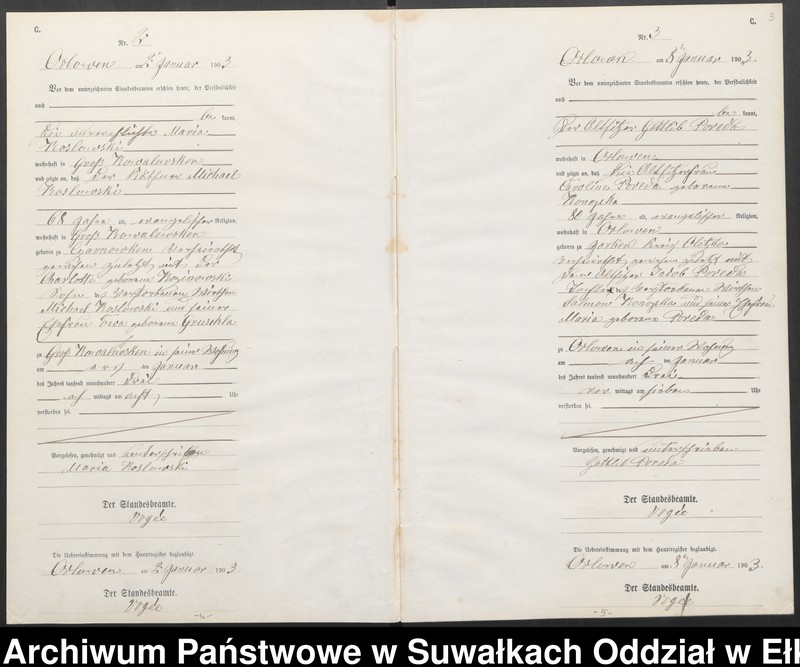 C.
Nr. 2
Orlowen am 2ten Januar 1903.
Vor dem unterzeichneten Standesbeamten erschien heute, der Persönlichkeit
nach
be kannt,
die unverehelichte Maria
Koslowski
wohnhaft in Groß Kowalewsken
und zeigte an, daß der Käthner Michael
Koslowski
68 Jahre a. evangelischer Religion,
wohnhaft in Groß Kowalewsken
geboren zu Czarnowken verheirathet
gewesen zuletzt mit der
Charlotte geborene
Sohn des verstorbenen Wirthen
Michael Koslowski und seiner
Ehefrau Eva geborene Gruschla
zu Groß Kowalewsken in seiner Wohnung
am Januar
des Jahres tausend neunhundert drei
mittags um acht Uhr
verstorben sei.
Vorgelesen, genehmigt und unterschrieben
Maria Koslowski
Der Standesbeamte.
Vogée
Die Uebereinstimmung mit dem Hauptregister beglaubigt.
Orlowen am 2. Januar 1903.
Der Standesbeamte.
Vogée
-4-
3
C.
Nr. 3
Orlowen am 8ten Januar 1903.
Vor dem unterzeichneten Standesbeamten erschien heute, der Persönlichkeit
nach
be kannt,
der Altsitzer Gottlieb Poreda
wohnhaft in Orlowen
und zeigte an, daß die Altsitzerfrau
Caroline Poreda geborene
Konopka
80 Jahre a. evangelischer Religion,
wohnhaft in Orlowen
geboren zu Gorken Kreis Oletzko
verheirathet gewesen zuletzt mit
dem Altsitzer Jacob Poreda
Tochter des verstorbenen Wirthen
Salomon Konopka und seiner Ehefrau
Maria geborene Poreda
zu Orlowen in seiner Wohnung
am acht Januar
des Jahres tausend neunhundert drei
vor mittags um sieben Uhr
verstorben sei.
Vorgelesen, genehmigt und unterschrieben
Gottlieb Poreda
Der Standesbeamte.
Vogée
Die Uebereinstimmung mit dem Hauptregister beglaubigt.
Orlowen am 8ten Januar 1903.
Der Standesbeamte.
Vogée
-5-
Archiwum Państwowe w Suwałkach Oddział w Eł